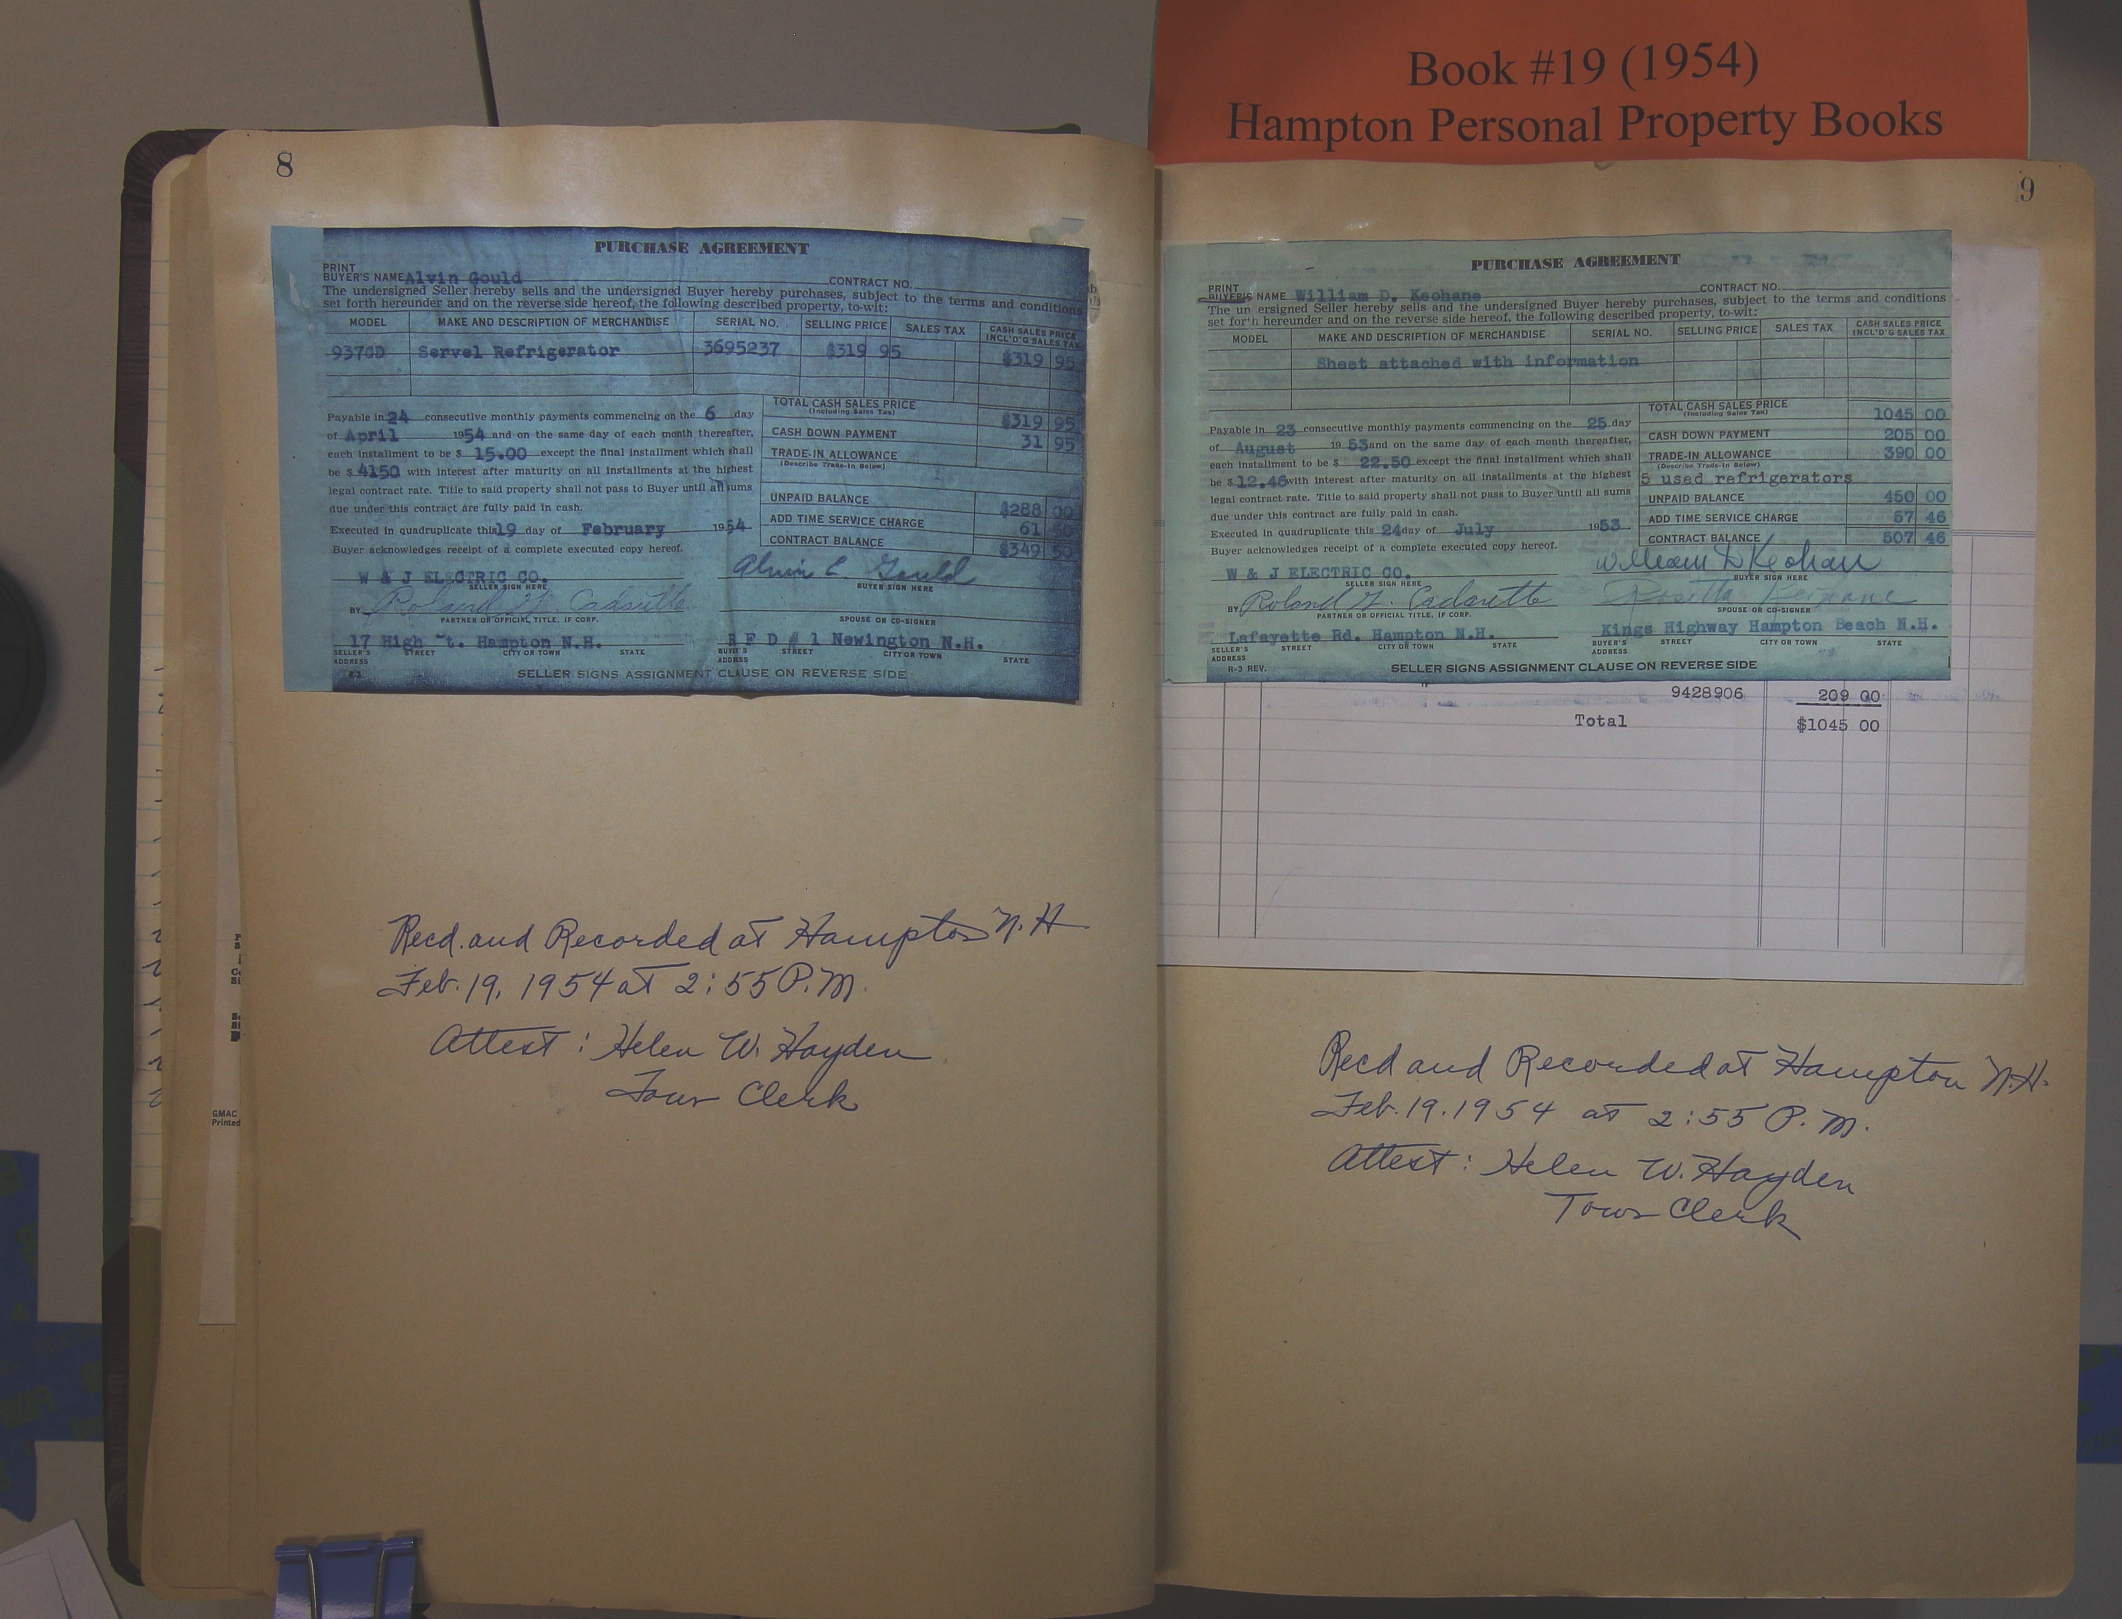 Book #19 (1954)
Hampton Personal Property Books
8
PURCHASE AGREEMENT
PRINT
BUYER'S NAME Alvin Gould CONTRACT NO.
The undersigned Seller hereby sells and the undersigned Buyer hereby purchases, subject to the terms and conditions
set forth hereunder and on the reverse side hereof, the following described property, to-wit:
MODEL MAKE AND DESCRIPTION OF MERCHANDISE SERIAL NO. SELLING PRICE SALES TAX CASH SALES PRICE INCL'D'G SALES TAX
Servel Refrigerator 3695237 $319 95 $319 95
TOTAL CASH SALES PRICE (Including Sales Tax) $319 95
CASH DOWN PAYMENT 31 95
TRADE-IN ALLOWANCE
(Describe Trade-In Below)
UNPAID BALANCE $288 00
ADD TIME SERVICE CHARGE 61 50
CONTRACT BALANCE $349 50
Payable in 24 consecutive monthly payments commencing on the 6 day
of April 1954 and on the same day of each month thereafter,
each installment to be $ 15.00 except the final installment which shall
be $ 4150 with interest after maturity on all installments at the highest
legal contract rate. Title to said property shall not pass to Buyer until all sums
due under this contract are fully paid in cash.
Executed in quadruplicate this 19 day of February 1954
Buyer acknowledges receipt of a complete executed copy hereof.
W & J ELECTRIC CO.
SELLER SIGN HERE
BY Roland
PARTNER OR OFFICIAL TITLE, IF CORP.
17 High t. Hampton N.H.
SELLER'S ADDRESS STREET CITY OR TOWN STATE
Alvin C. Gould
BUYER SIGN HERE
SPOUSE OR CO-SIGNER
R F D # 1 Newington N.H.
BUYER'S ADDRESS STREET CITY OR TOWN STATE
R-3
SELLER SIGNS ASSIGNMENT CLAUSE ON REVERSE SIDE
Recd. and Recorded at Hampton N.H
Feb. 19, 1954 at 2:55 P.M.
Attest : Helen W. Hayden
Town Clerk
GMAC
Printed
9
PURCHASE AGREEMENT
PRINT
BUYER'S NAME William D. Keohane CONTRACT NO.
The un ersigned Seller hereby sells and the undersigned Buyer hereby purchases, subject to the terms and conditions
set for'h hereunder and on the reverse side hereof, the following described property, to-wit:
MODEL MAKE AND DESCRIPTION OF MERCHANDISE SERIAL NO. SELLING PRICE SALES TAX CASH SALES PRICE INCL'D'G SALES TAX
Sheet attached with information
TOTAL CASH SALES PRICE (Including Sales Tax) 1045 00
CASH DOWN PAYMENT 205 00
TRADE-IN ALLOWANCE 390 00
(Describe Trade-In Below)
5 used refrigerators
UNPAID BALANCE 450 00
ADD TIME SERVICE CHARGE 57 46
CONTRACT BALANCE 507 46
Payable in 23 consecutive monthly payments commencing on the 25 day
of August 1953 and on the same day of each month thereafter,
each installment to be $ 22.50 except the final installment which shall
be $ 12.46 with interest after maturity on all installments at the highest
legal contract rate. Title to said property shall not pass to Buyer until all sums
due under this contract are fully paid in cash.
Executed in quadruplicate this 24 day of July 1953
Buyer acknowledges receipt of a complete executed copy hereof.
W & J ELECTRIC CO.
SELLER SIGN HERE
BY Roland
PARTNER OR OFFICIAL TITLE, IF CORP.
Lafayette Rd. Hampton N.H.
SELLER'S ADDRESS STREET CITY OR TOWN STATE
William D Keohane
BUYER SIGN HERE
SPOUSE OR CO-SIGNER
Kings Highway Hampton Beach N.H.
BUYER'S ADDRESS STREET CITY OR TOWN STATE
R-3 REV.
SELLER SIGNS ASSIGNMENT CLAUSE ON REVERSE SIDE
9428906 209 00
Total $1045 00
Recd and Recorded at Hampton N.H.
Feb. 19. 1954 at 2:55 P.M.
Attest : Helen W. Hayden
Town Clerk